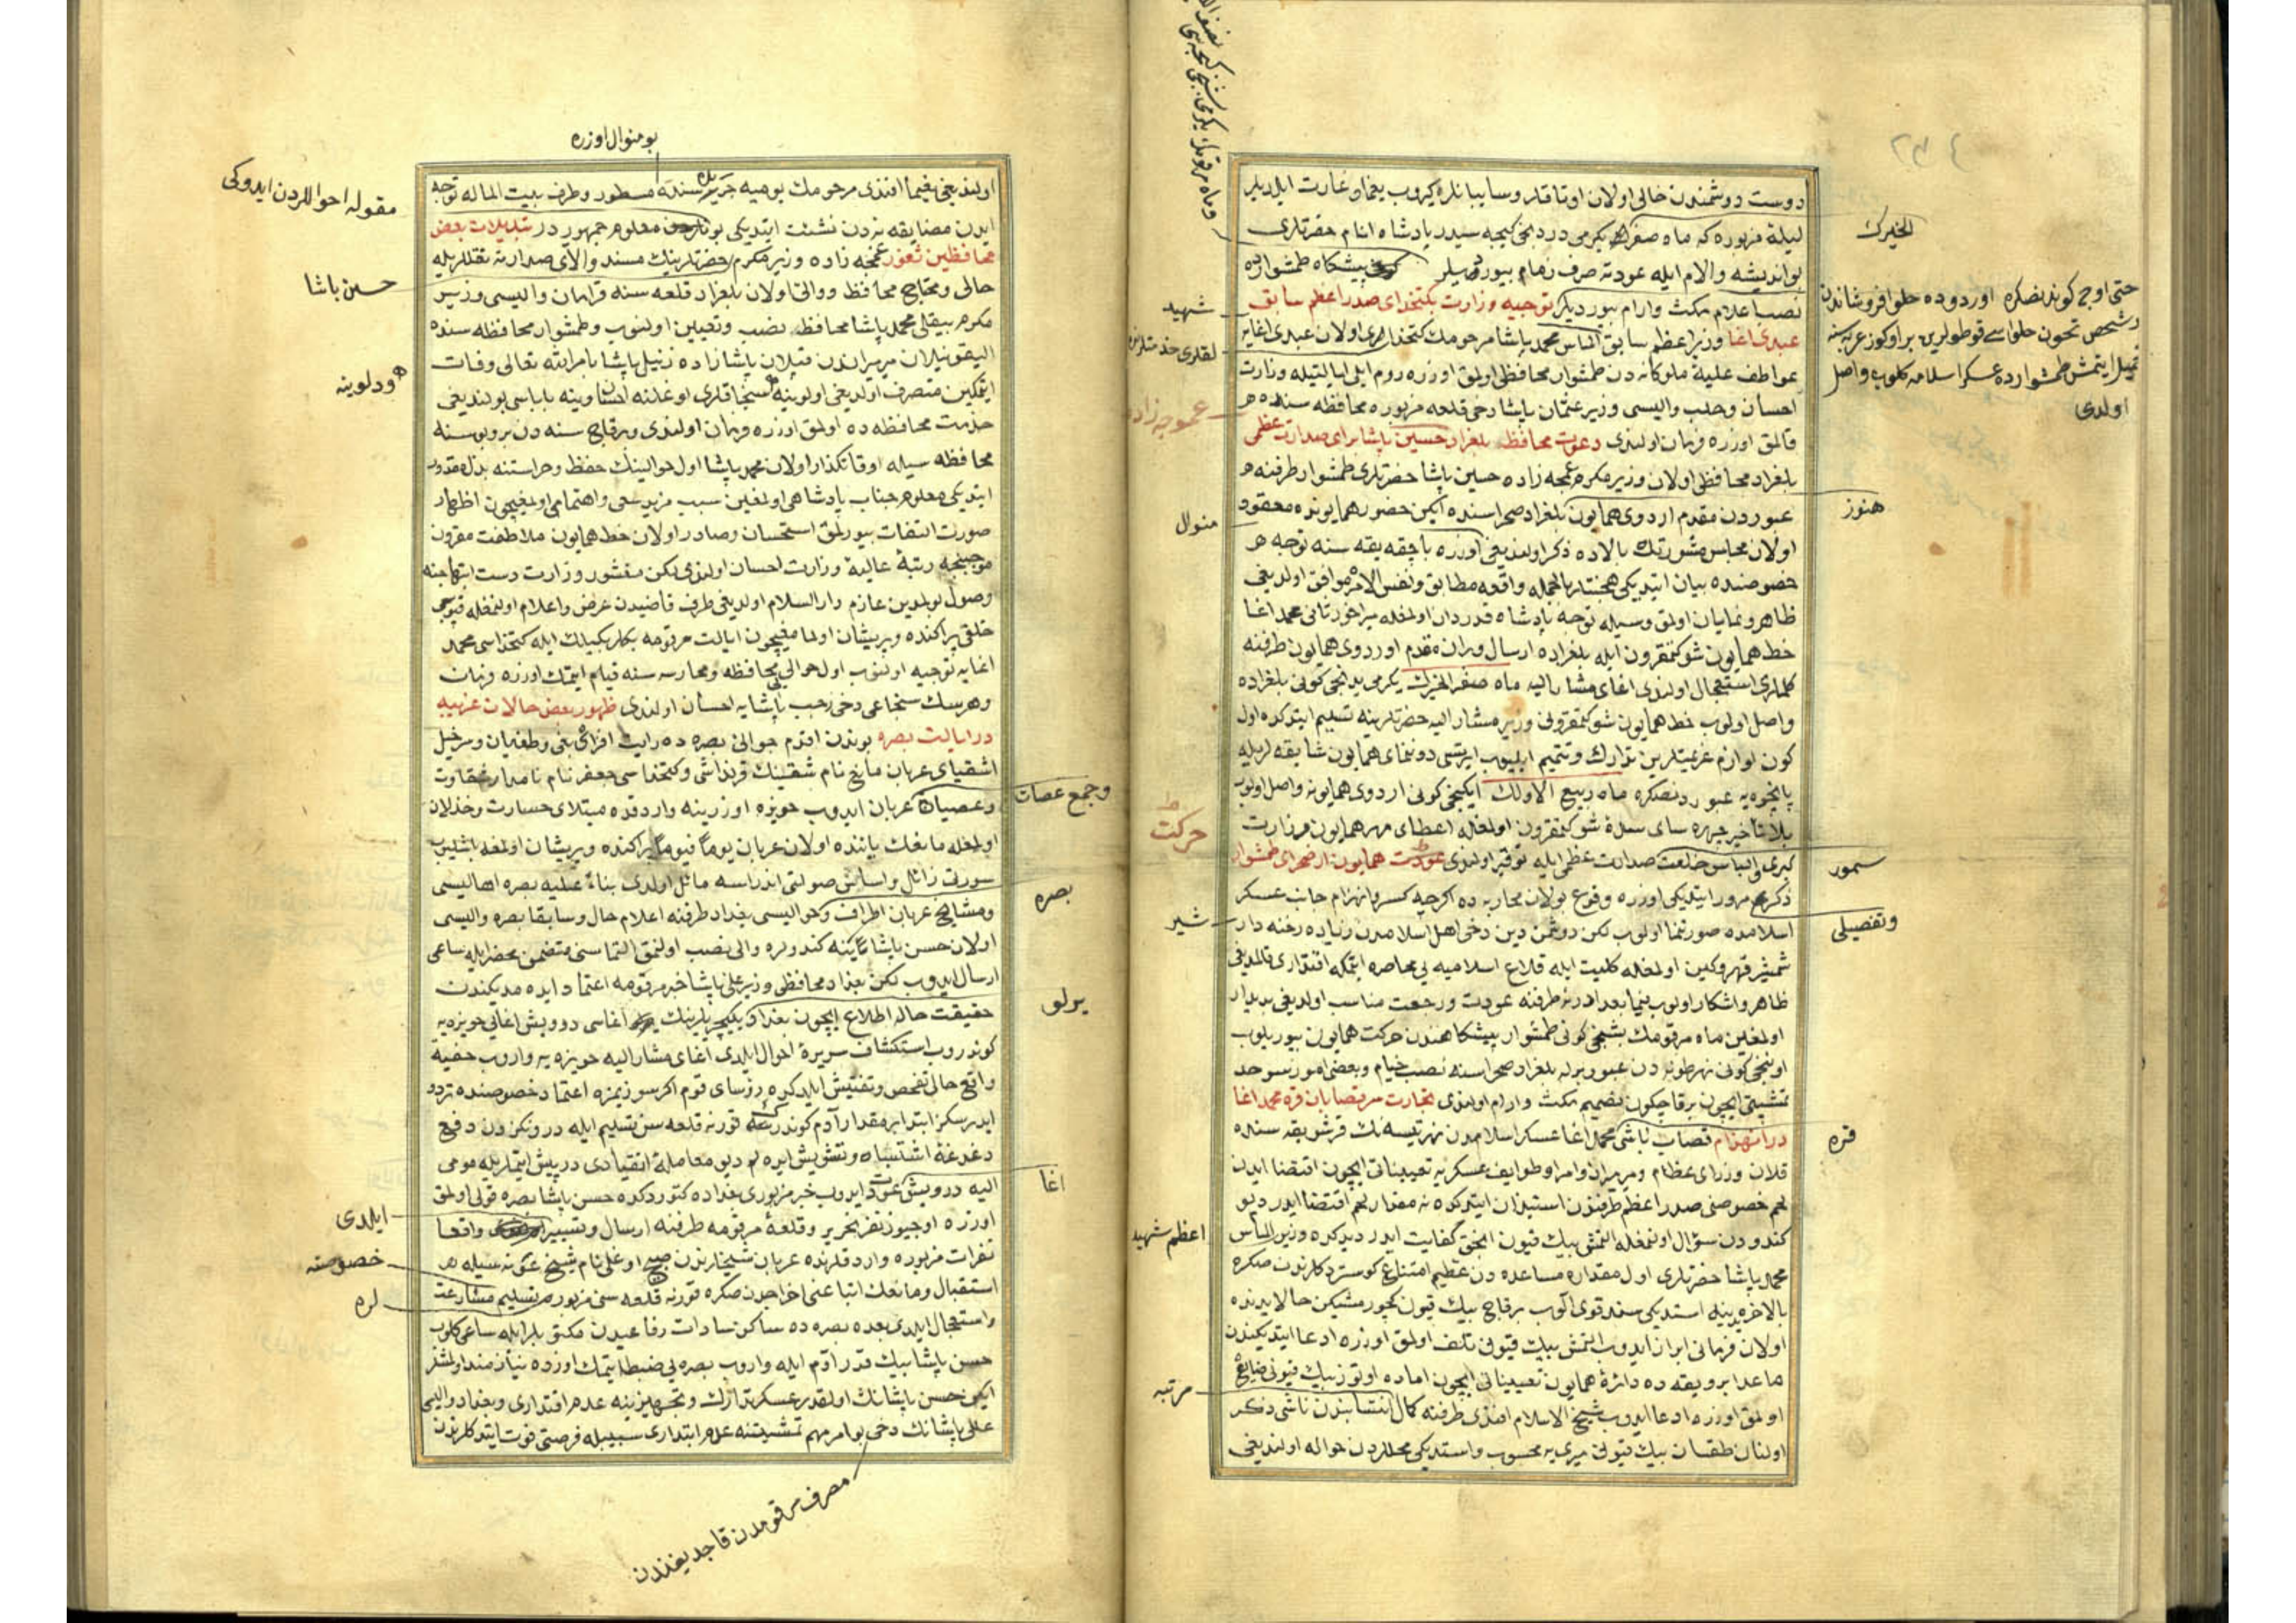 دوست دوشمندن خالی اولان اوتاقلر وسایبانلره کیروب یغما وغارت ایلدیلر
لیلهٔ مزبوره که ماه صفرک یکرمی دردنجی کیجه سیدر پادشاه انام حضرتلری
بو اندیشه والام ایله عودته صرف زمام بیوردیلر پیشکاه طمشوارده
نصب اعلام مکث وارام بیوردیلر توجیه وزارت بکتخدای صدر اعظم سابق
عبدی اغا وزیر اعظم سابق الماس محمد پاشا مرحومک کتخدالری اولان عبدی اغایه
عواطف علیهٔ ملوکانه دن طمشوار محافظی اولمق اوزره روم ایلی ایالتیله وزارت
احسان وحلب والیسی وزیر عثمان پاشا دخی قلعه مزبوره محافظه سنده
قالمق اوزره فرمان اولندی دعوت محافظ بلغراد حسین پاشا برای صدارت عظمی
بلغراد محافظی اولان وزیر مکرم عمجه زاده حسین پاشا حضرتلری طمشوار طرفنه
عبوردن مقدم اردوی همایون بلغراد صحراسنده ایکن حضور همایونده معقود
اولان مجلس مشورتک بالاده ذکر اولندیغی اوزره باچقه یقه سنه توجه
خصوصنده بیان ایتدیکی هختار بالجمله واقعه مطابق ونفس الامره موافق اولدیغی
ظاهر ونمایان اولمق وسیله توجه پادشاه قدردان اولمغله میراخور ثانی محمد اغا
خط همایون شوکتمقرون ایله بلغراده ارسال وران مقدم اوردوی همایون طرفنه
کلملری استعجال اولندی اغای مشار الیه ماه صفر الخیرک یکرمی یدنجی کونی بلغراده
واصل اولوب خط همایون شوکتمقرونی وزیر مشار الیه حضرتلرینه تسلیم ایتدکده اول
کون لوازم عزیمتلرین تدارک وتتمیم ایلیوب ایرتسی دونمای همایون شایقه لریله
پانچوه یه عبوردنصکره ماه ربیع الاولک ایکنجی کونی اردوی همایونه واصل اولوب
بلا تأخیر چهره سای سدهٔ شوکتمقرون اولمغله اعطای مهر همایون وزارت
کبری والباس خلعت صدارت عظمی ایله توقیر اولندی عودت همایون از صحرای طمشوار
ذکری مرور ایتدیکی اوزره وقوع بولان محاربه ده اکرچه کسر وانهزام جانب عسکر
اسلامده صورتنما اولوب لکن دوشمن دین دخی اهل اسلامدن زیاده رخنه دار
شمشیر قهر وکین اولمغله کلیت ایله قلاع اسلامیه یی محاصره ایتمکه اقتداری قالمدیغی
ظاهر واشکار اولوب بنما بعد ادرنه طرفنه عودت ورجعت مناسب اولدیغی بدیدار
اولمغین ماه مرقومک بشنجی کونی طمشوار پیشکاهندن حرکت همایون بیوریلوب
اوننجی کونی نهر طونه دن عبور بر له بلغراد صحراسنه نصب خیام وبعضی امور سرحد
تمشیتی ایچون برقاچکون تصمیم مکث وارام اولندی تجارت سر قصابان قره محمد اغا
در انهزام قصاب باشی محمد اغا عسکر اسلامدن نهر تیسه نک قرشو یقه سنده
قلان وزرای عظام ومیرمیران وامرا وطوایف عسکریه تعییناتی ایچون اقتضا ایدن
لحم خصوصنی صدر اعظم طرفندن استیذان ایتدکده نه مقدار لحم اقتضا ایدر دیو
کندودن سؤال اولنمغله التمش بیک قیون انجق کفایت ایدر دیدکده وزیر الماس
محمد پاشا حضرتلری اول مقداره مساعده دن عظیم امتناع کوستردکلرندن صکره
بالاخره ینه استدیکی سند قوی الوب برقاچ بیک قیون کچورمشیکن حالا یدنده
اولان فرمانی ابراز ایدوب التمش بیک قیونی تلف اولمق اوزره ادعا ایتدیکندن
ماعدا برو یقه ده دائرهٔ همایون تعییناتی ایچون اماده اوتوز بیک قیونی ضایع
اولمق اوزره ادعا ایدوب شیخ الاسلام افندی طرفنه کمال انتسابندن ناشی ذکر
اولنان طقسان بیک قیونی میری یه محسوب واستدیکی محللردن حواله اولندیغی
الخیرک
حتی اوچ کوندنصکره اوردوده حلوا فروشاندن
اولدی
هنوز
سمور
وتفصیلی
قره
شهید
عموجه زاده
منوال
حرکت
شیر
اعظم شهید
مرتبه
بو منوال اوزره
اولندیغی فیما افندی مرحومک یومیه جریده سنده مسطور وطرف بیت الماله توجه
ایدن مضایقه نه دن نشئت ایتدیکی بوندن معلوم جمهور در تبدیلات بعض
محافظین ثغور عمجه زاده وزیر مکرم حضرتلرینک مسند والای صدارته نقللریله
خالی ومحتاج محافظ ووالی اولان بلغراد قلعه سنه قرامان والیسی وزیر
مکرم بیقلی محمد پاشا محافظ نصب وتعیین اولنوب وطمشوار محافظه سنده
الیقونیلان میرمیراندن قپلان پاشا زاده زینل پاشا بامر الله تعالی وفات
ایتمکین متصرف اولدیغی اولونیه سنجاقلری اوغلنه احسان وینه باباسی بولندیغی
خدمت محافظه ده اولمق اوزره فرمان اولندی وبرقاچ سنه دن برو بوسنه
محافظه سیله اوقاتکذار اولان محمد پاشا اول حوالینک حفظ وحراستنه بذل مقدور
ایتدیکی معلوم جناب پادشاهی اولمغین سبب مزید سعی واهتمامی اولمغیچون اظهار
صورت التفات بیورلمق استحسان وصادر اولان خط همایون ملاطفت مقرون
موجبنجه رتبهٔ عالیهٔ وزارت احسان اولندی لکن منشور وزارت دست ابتهاجنه
وصول بولمدین عازم دار السلام اولدیغی طرف قاضیدن عرض واعلام اولنمغله قپوسی
خلقی پراکنده وپریشان اولمامغیچون ایالت مرقومه بکلربکیلک ایله کتخداسی محمد
اغایه توجیه اولنوب اول حوالی محافظه ومحارسه سنه قیام ایتمک اوزره فرمان
وهرسک سنجاغی دخی رجب پاشایه احسان اولندی ظهور بعض حالات غریبه
در ایالت بصره بوندن اقدم حوالی بصره ده رایت افراز بغی وطغیان وسرخیل
اشقیای عربان مانع نام شقینک قرنداشی وکتخداسی جعفر نام نامدار شقاوت
وعصیان عربان ایدوب حویزه اوزرینه واردقده مبتلای خسارت وخذلان
اولمغله مانعک یاننده اولان عربان یوماً فیوماً پراکنده وپریشان اولمغه باشلیوب
سورتی زائل واساس صولتی اندراسه مائل اولدی بناءً علیه بصره اهالیسی
ومشایخ عربان اطراف وحوالیسی بغداد طرفنه اعلام حال وسابقا بصره والیسی
اولان حسن پاشا ینه کندولره والی نصب اولنمق التماسنی متضمن محضر ایله ساعی
ارسال ایدوب لکن بغداد محافظی وزیر علی پاشا خبر مرقومه اعتماد ایده مدیکندن
حقیقت حاله اطلاع ایچون بغداد یکیچریلرینک اغاسی درویش اغایی حویزه یه
کوندروب استکشاف سریرهٔ احوال ایلدی اغای مشار الیه حویزه یه واروب خفیه
واقع حالی تفحص وتفتیش ایلدکده رؤسای قوم اکر سوزیمزه اعتماد خصوصنده تردد
ایدرسکز ابتدا بر مقدار آدم کوندرک قورنه قلعه سن تسلیم ایله درونکزدن دفع
دغدغهٔ اشتباه وتشویش ایده لم دیو معاملهٔ انقیادی در پیش ایتملریله مومی
الیه درویش عودت ایدوب خبر مزبوری بغداده کتوردکده حسن پاشا بصره قولی اولمق
اوزره اوچیوز نفر تحریر وقلعهٔ مرقومه طرفنه ارسال وتسییر واقعا
نفرات مزبوره واردقلرنده عربان شیخلرندن اوغلی نام شیخ سیله
استقبال ومانعک اتباعنی اخراجدن صکره قورنه قلعه سنی مزبور تسلیم مسارعت
واستعجال ایلدی بعده بصره ده ساکن سادات رفاعیدن مکتوبلر ایله ساعی کلوب
حسن پاشا بیک قدر آدم ایله واروب بصره یی ضبط ایتمک اوزره نیازمند اولمشلر
ایکن حسن پاشانک اولقدر عسکر تدارک وتجهیزینه عدم اقتداری وبغداد والیسی
علی پاشانک دخی بو امر مهم تمشیتنه عدم ابتداری سببیله فرصتی فوت ایتدکلرندن
مقوله احواللردن ایدوکی
حسین پاشا
ودلوینه
وجمع عصات
بصره
یرلو
اغا
ایلدی
خصوصنه
لره
مصرف مرقومدن قاجدیغندن